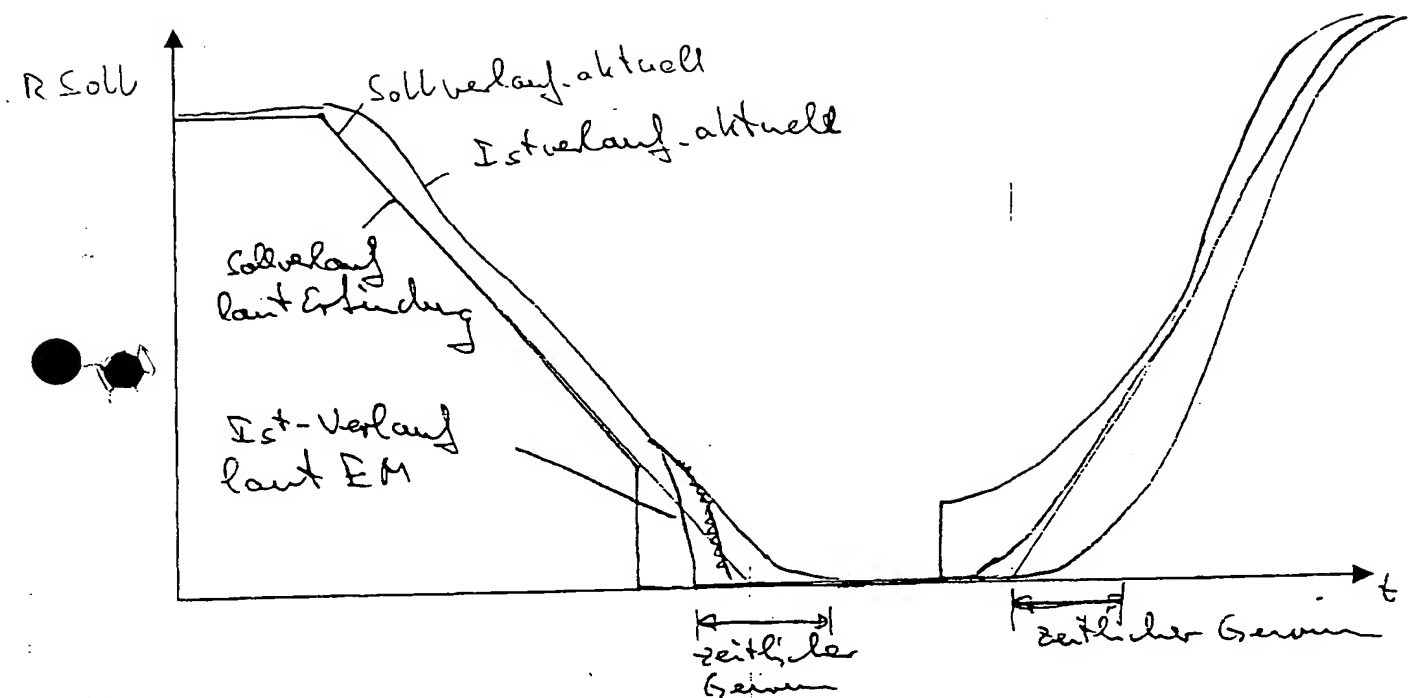 R Soll
Sollverlauf-aktuell
Istverlauf-aktuell
Sollverlauf
laut Erfindung
Ist-Verlauf
laut EM
t
zeitlicher
Gewinn
zeitlicher Gewinn